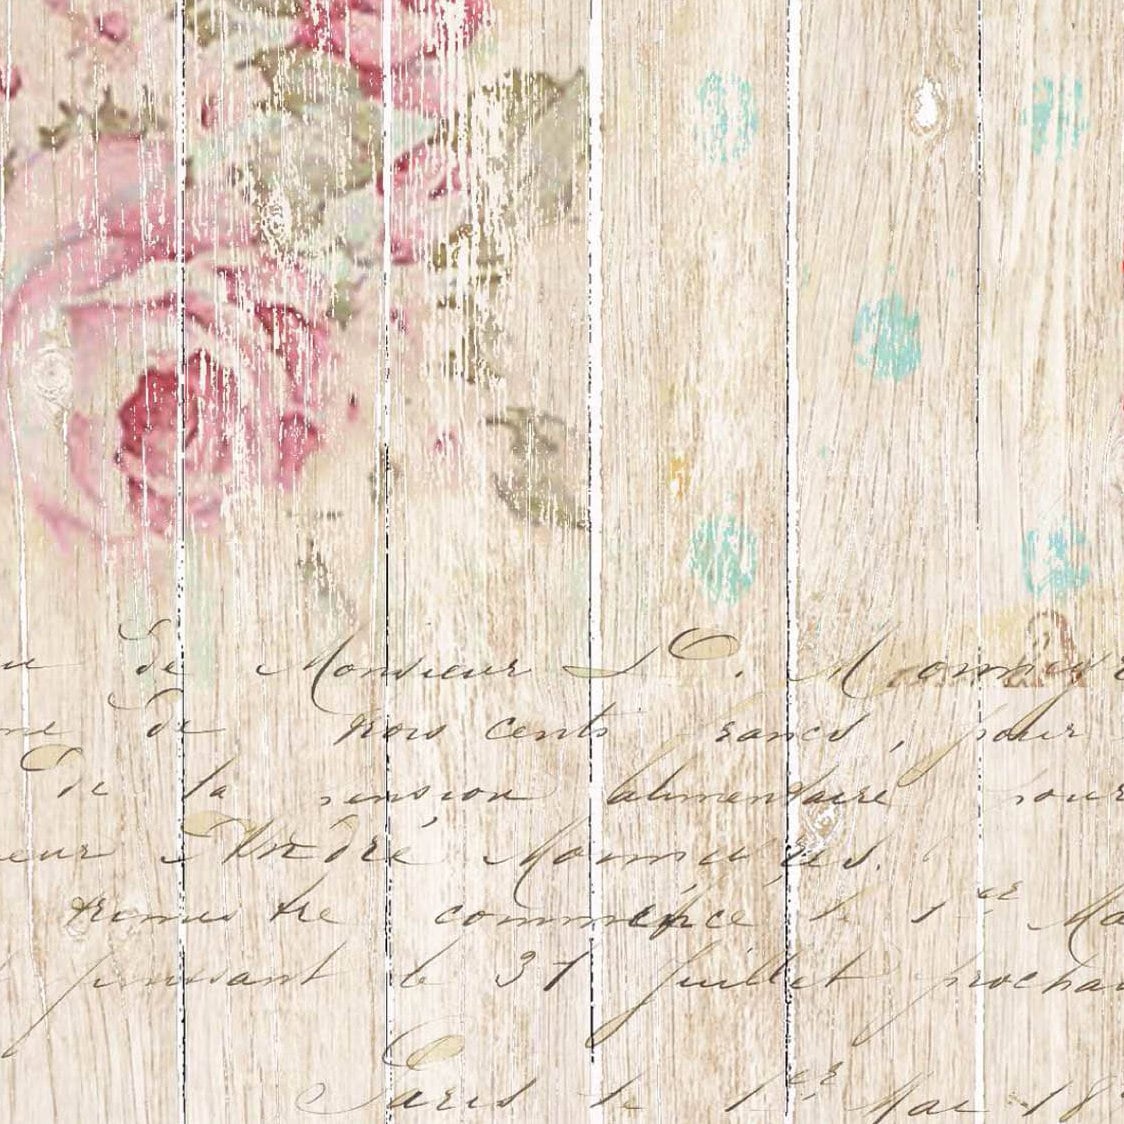 de Monsieur D. Monnuy
de trois cents francs, pour
De la pension alimentaire pour
eur André Monnuyés.
trimestre commencé le 1er Ma
finissant le 31 Juillet prochai
Paris le 1er Mai 18